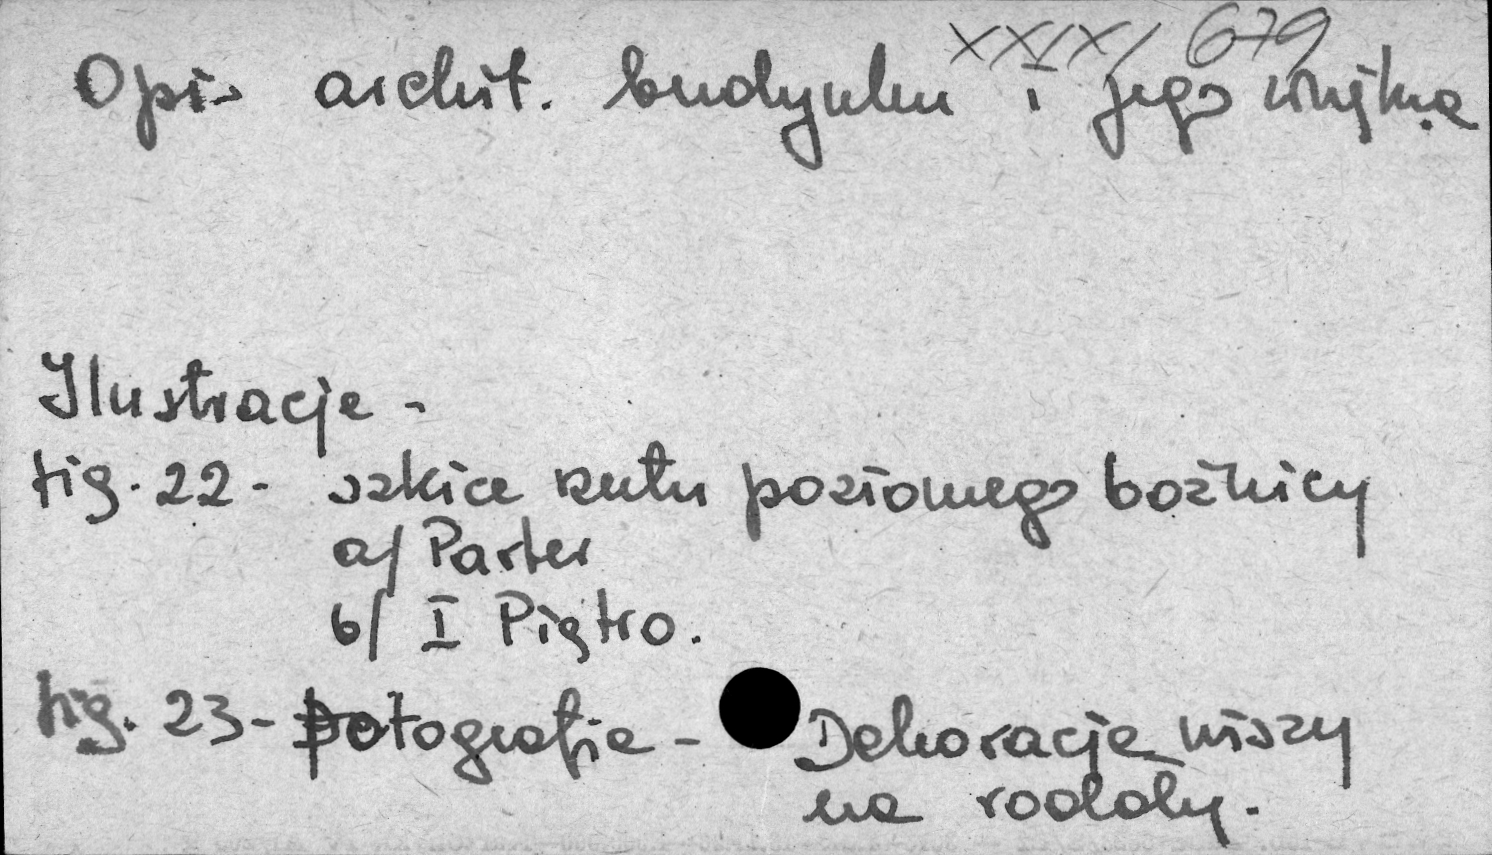 XXIX/679
Opis archit. budynku i jego wnętrza
Ilustracje -
fig. 22 - szkice rzutu poziomego bożnicy
a/ Parter
b/ I Piętro.
fig. 23 - fotografie - Dekoracje niszy
na rodały.